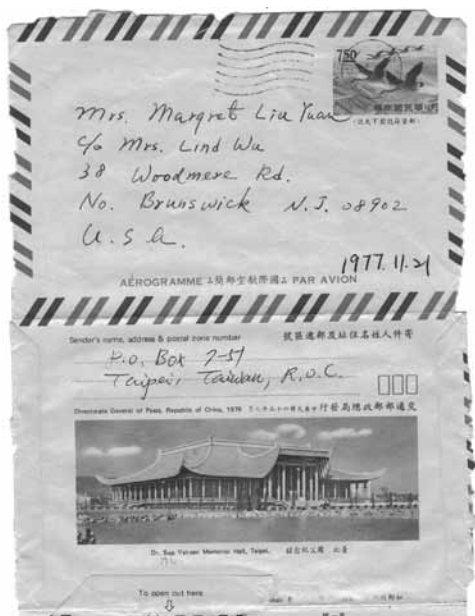 7.50
中華民國郵票
Mrs. Margret Liu Yuan
c/o Mrs. Lind Wu
38 Woodmere Rd.
No. Brunswick N.J. 08902
U.S.A.
1977.11.21
AÉROGRAMME 國際航空郵簡 PAR AVION
Sender's name, address & postal zone number 寄件人姓名住址及郵遞區號
P.O. Box 7-51
Taipei, Taiwan, R.O.C.
Directorate General of Posts, Republic of China, 1976 交通部郵政總局發行
Dr. Sun Yat-sen Memorial Hall, Taipei. 臺北 國父紀念館
To open cut here